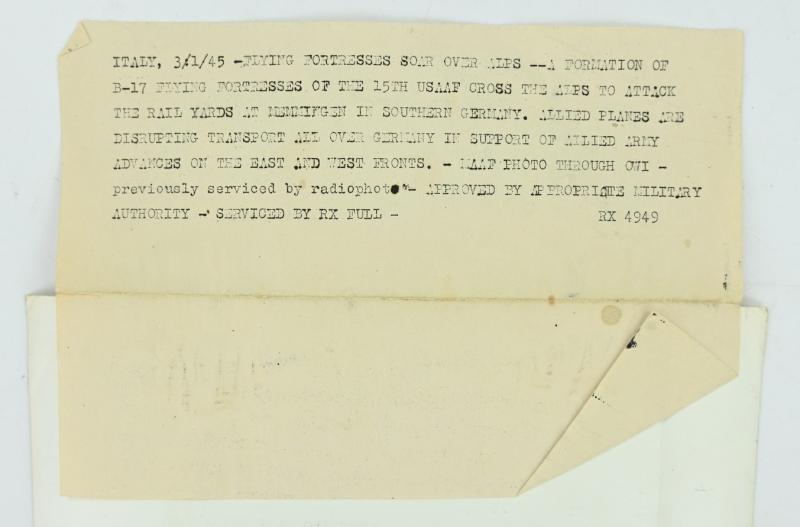 ITALY, 3/1/45 -FLYING FORTRESSES SOAR OVER ALPS --A FORMATION OF
B-17 FLYING FORTRESSES OF THE 15TH USAAF CROSS THE ALPS TO ATTACK
THE RAIL YARDS AT MEMMINGEN IN SOUTHERN GERMANY. ALLIED PLANES ARE
DISRUPTING TRANSPORT ALL OVER GERMANY IN SUPPORT OF ALLIED ARMY
ADVANCES ON THE EAST AND WEST FRONTS. - MAAF PHOTO THROUGH OWI -
previously serviced by radiophoto - APPROVED BY APPROPRIATE MILITARY
AUTHORITY - SERVICED BY RX FULL - RX 4949